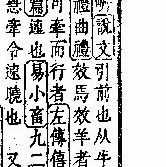 說文引前也从牛
禮曲禮效馬效羊者
可牽而行者左傳僖
篇速也易小畜九二
牽令速曉也又